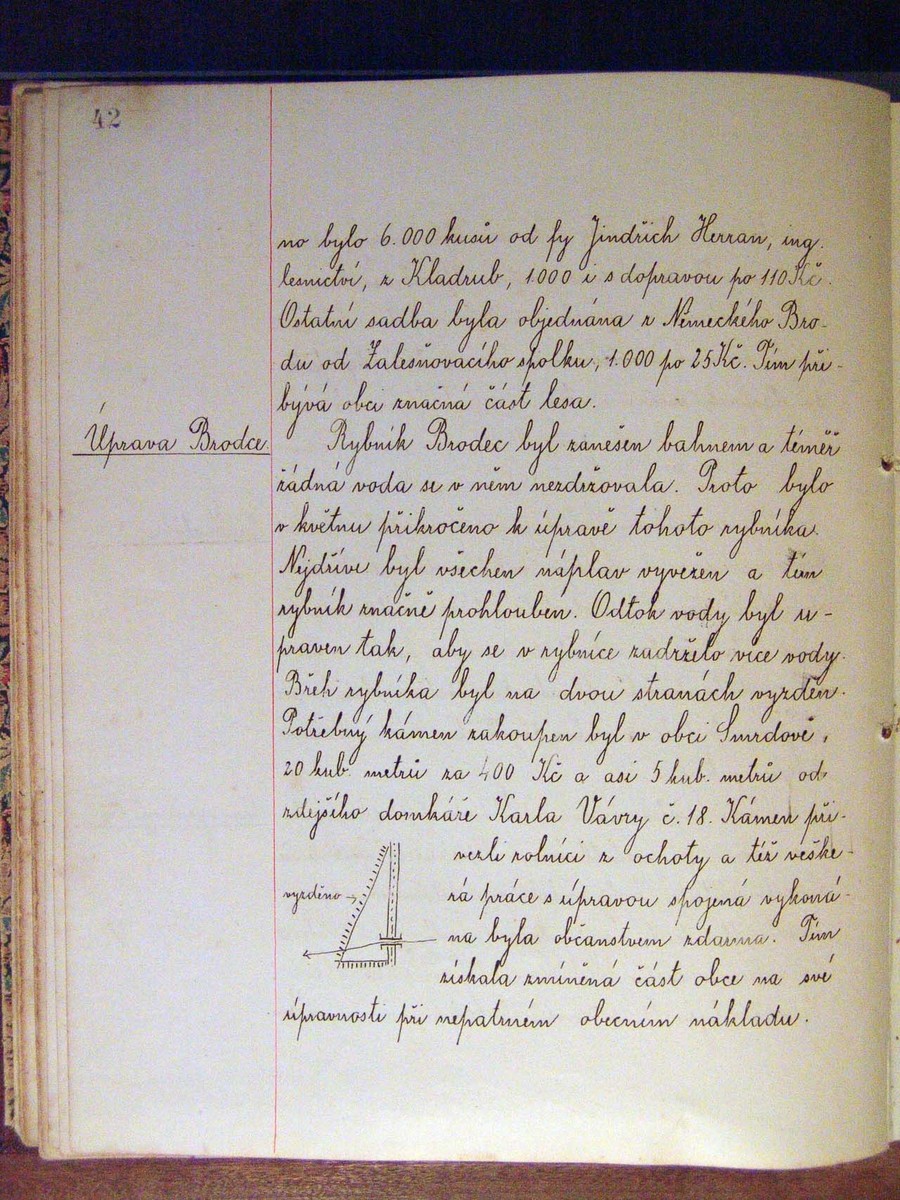 42
no bylo 6.000 kusů od fy Jindřich Herran, ing.
lesnictví, z Kladrub, 1.000 i s dopravou po 110 Kč.
Ostatní sadba byla objednána z Německého Bro-
du od Zalesňovacího spolku, 1.000 po 25 Kč. Tím při-
bývá obci značná část lesa.
Úprava Brodce.
Rybník Brodec byl zanešen bahnem a téměř
žádná voda se v něm nezdržovala. Proto bylo
v květnu přikročeno k úpravě tohoto rybníka.
Nejdříve byl všechen náplav vyvežen a tím
rybník značně prohlouben. Odtok vody byl u-
praven tak, aby se v rybníce zadrželo více vody.
Břeh rybníka byl na dvou stranách vyzděn.
Potřebný kámen zakoupen byl v obci Smrdově,
20 kub. metrů za 400 Kč a asi 5 kub. metrů od
zdejšího domkáře Karla Vávry č. 18. Kámen při-
vezli rolníci z ochoty a též veške-
vyzděno
rá práce s úpravou spojená vykoná-
na byla občanstvem zdarma. Tím
získala zmíněná část obce na své
úpravnosti při nepatrném obecním nákladu.